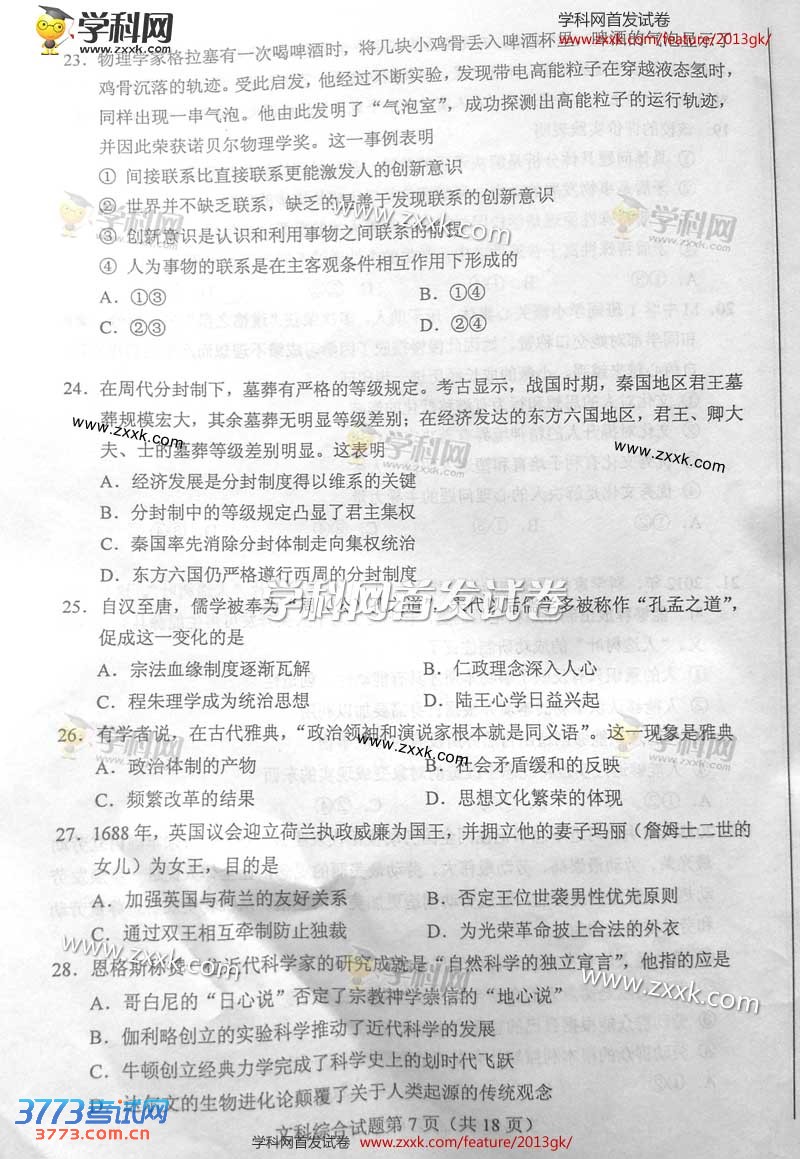 学科网首发试卷
www.zxxk.com/feature/2013gk/
学科网
www.zxxk.com
23．物理学家格拉塞有一次喝啤酒时，将几块小鸡骨丢入啤酒杯里，啤酒的气泡显示了
鸡骨沉落的轨迹。受此启发，他经过不断实验，发现带电高能粒子在穿越液态氢时，
同样出现一串气泡。他由此发明了“气泡室”，成功探测出高能粒子的运行轨迹，
并因此荣获诺贝尔物理学奖。这一事例表明
① 间接联系比直接联系更能激发人的创新意识
② 世界并不缺乏联系，缺乏的是善于发现联系的创新意识
③ 创新意识是认识和利用事物之间联系的前提
④ 人为事物的联系是在主客观条件相互作用下形成的
A．①③ B．①④
C．②③ D．②④
学科网
www.zxxk.com
学科网
www.zxxk.com
www.zxxk.com
24．在周代分封制下，墓葬有严格的等级规定。考古显示，战国时期，秦国地区君王墓
葬规模宏大，其余墓葬无明显等级差别；在经济发达的东方六国地区，君王、卿大
夫、士的墓葬等级差别明显。这表明
A．经济发展是分封制度得以维系的关键
B．分封制中的等级规定凸显了君主集权
C．秦国率先消除分封体制走向集权统治
D．东方六国仍严格遵行西周的分封制度
www.zxxk.com
学科网
www.zxxk.com
学科网首发试卷
25．自汉至唐，儒学被奉为“周
之道”，
后儒学多被称作“孔孟之道”，
促成这一变化的是
A．宗法血缘制度逐渐瓦解 B．仁政理念深入人心
C．程朱理学成为统治思想 D．陆王心学日益兴起
26．有学者说，在古代雅典，“政治领袖和演说家根本就是同义语”。这一现象是雅典
A．政治体制的产物 B．社会矛盾缓和的反映
C．频繁改革的结果 D．思想文化繁荣的体现
学科网
www.zxxk.com
学科网
27．1688 年，英国议会迎立荷兰执政威廉为国王，并拥立他的妻子玛丽（詹姆士二世的
女儿）为女王，目的是
A．加强英国与荷兰的友好关系 B．否定王位世袭男性优先原则
C．通过双王相互牵制防止独裁 D．为光荣革命披上合法的外衣
28．恩格斯称
近代科学家的研究成就是“自然科学的独立宣言”，他指的应是
A．哥白尼的“日心说”否定了宗教神学崇信的“地心说”
B．伽利略创立的实验科学推动了近代科学的发展
C．牛顿创立经典力学完成了科学史上的划时代飞跃
达尔文的生物进化论颠覆了关于人类起源的传统观念
www.zxxk.com
学科网
www.zxxk.com
文科综合试题第 7 页（共 18 页）
3773考试网
www.3773.com.cn
学科网首发试卷
www.zxxk.com/feature/2013gk/